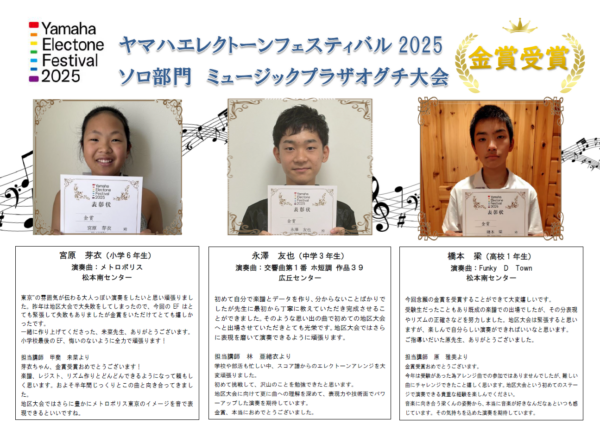 Yamaha
Electone
Festival
2025
ヤマハエレクトーンフェスティバル 2025
ソロ部門 ミュージックプラザオグチ大会
金賞受賞
Yamaha
Electone
Festival
2025
表彰状
金賞
宮原 芽衣
Yamaha
Electone
Festival
2025
表彰状
金賞
Yamaha
Electone
Festival
2025
表彰状
金賞
宮原 芽衣(小学6年生)
演奏曲:メトロポリス
松本南センター
東京の雰囲気が伝わる大人っぽい演奏をしたいと思い頑張りまし
た。昨年は地区大会で大失敗をしてしまったので、今回の EF はと
ても緊張して失敗もありましたが金賞をいただけてとても嬉し
かったです。
一緒に作り上げてくださった、未菜先生、ありがとうございます。
小学校最後の EF、悔いのないように全力で頑張ります!
担当講師 甲斐 未菜より
芽衣ちゃん、金賞受賞おめでとうございます!
楽譜、レジスト、リズム作りとどんどんできるようになって頼もし
く思います。およそ半年間じっくりとこの曲と向き合ってきまし
た。
地区大会ではさらに豊かにメトロポリス東京のイメージを音で表
現できるといいですね。
永澤 友也(中学3年生)
演奏曲:交響曲第1番 ホ短調 作品39
広丘センター
初めて自分で楽譜とデータを作り、分からないことばかりでし
たが先生に最初から丁寧に教えていただき完成させるこ
とができました。そのような思い出の曲で初めての地区大会
へと出場させていただきとても光栄です。地区大会ではさら
に表現を磨いて演奏できるように頑張ります。
担当講師 林 亜緒衣より
学校や部活も忙しい中、スコア譜からのエレクトーンアレンジを大
変頑張りました。
初めて挑戦して、沢山のことを勉強できたと思います。
地区大会に向けて更に曲への理解を深めて、表現力や技術面でパワ
ーアップした演奏を期待しています。
金賞、本当におめでとうございました。
橋本 梁(高校1年生)
演奏曲:Funky D Town
松本南センター
今回念願の金賞を受賞することができて大変嬉しいです。
受験生だったこともあり既成の楽譜での出場でしたが、その分表現
やリズムの正確さなどを努力しました。地区大会は緊張すると思い
ますが、楽しんで自分らしい演奏ができればいいなと思います。
ご指導いただいた原先生、ありがとうございました。
担当講師 原 雅美より
金賞受賞おめでとうございます。